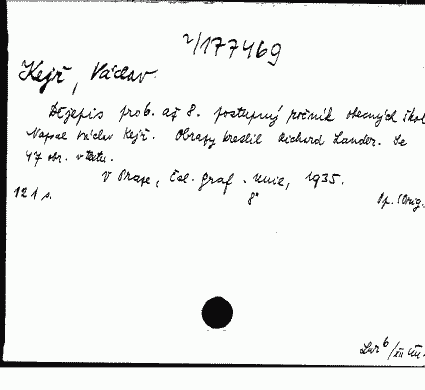 2/177469
Kejř, Václav
Dějepis pro 6. až 8. postupný ročník obecných škol
Napsal Václav Kejř. Obrazy kreslil Richard Lander. Se
47 obr. v textu.
V Praze, Čsl. graf. Unie, 1935.
121 s. 8° Op. (Orig.